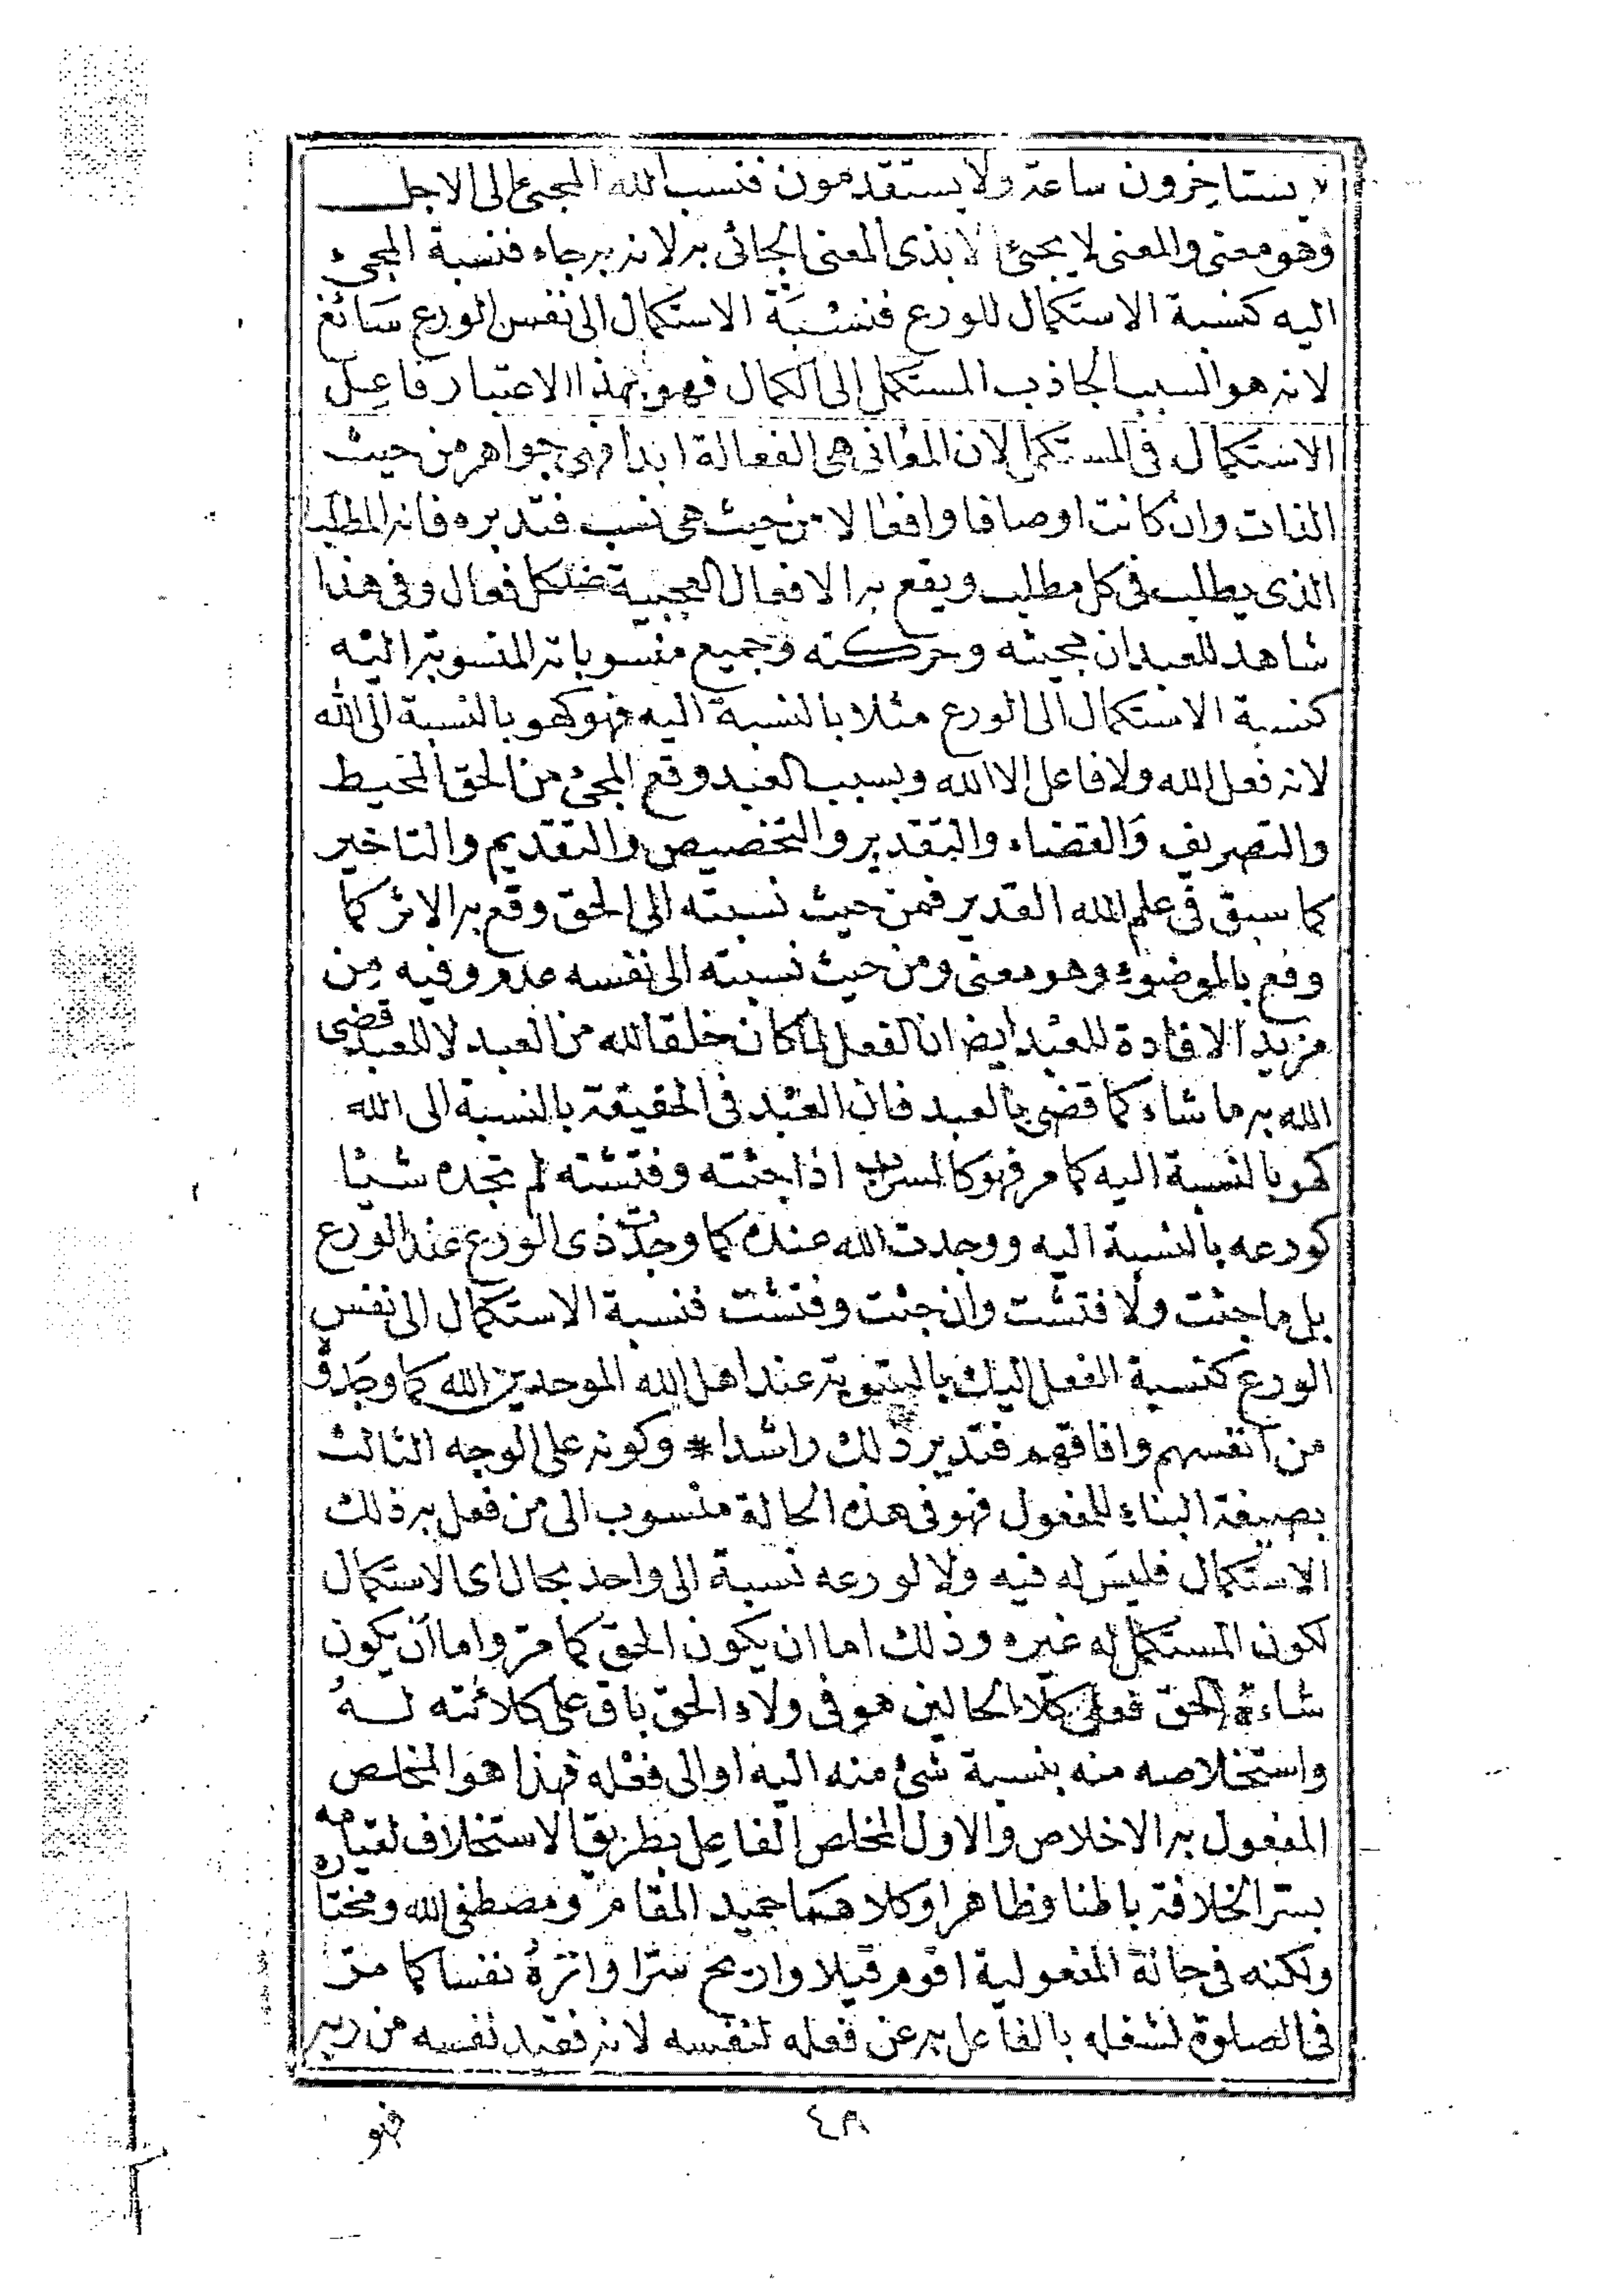 لا يستاخرون ساعة ولا يستقدمون فنسب الله المجئ الى الاجل
وهو معنى والمعنى لا يجئ الا بذى المعنى الجائى به لانه به جاء فنسبة المجئ
اليه كنسبة الاستكمال للورع فنسبة الاستكمال الى نفس الورع سائغ
لانه هو السبب الجاذب المستكمل الى الكمال فهو بهذا الاعتبار فاعل
الاستكمال فى المستكمل لان المعانى هى الفعالة ابدا فهى جواهر من حيث
الذات وان كانت اوصافا وافعالا من حيث هى نسب فتدبره فانه المطلب
الذى يطلب فى كل مطلب ويقع به الافعال العجيبة لكل فعال وفى هذا
شاهد للعبد ان مجيئه وحركته وجميع منسوباته المنسوبة اليه
كنسبة الاستكمال الى الورع مثلا بالنسبة اليه فهو كهو بالنسبة الى الله
لانه فعل الله ولا فاعل الا الله وبسبب العبد وقع المجئ من الحق المحيط
والتصريف والقضاء والتقدير والتخصيص والتقديم والتاخير
كما سبق فى علم الله القدير فمن حيث نسبته الى الحق وقع به الاثر كما
وقع بالموضوء وهو معنى ومن حيث نسبته الى نفسه عدم وفيه من
مزيد الافادة للعبد ايضا ان الفعل لما كان خلقا لله من العبد لا للعبد قضى
الله به ما شاء كما قضى بالعبد فان العبد فى الحقيقة بالنسبة الى الله
كهو بالنسبة اليه كما مر فهو كالسراب اذا جئته وفتشته لم تجده شيئا
كورعه بالنسبة اليه ووجدت الله عنده كما وجدت ذى الورع عند الورع
بل ما جئت ولا فتشت وان جئت وفتشت فنسبة الاستكمال الى نفس
الورع كنسبة الفعل اليك بالبنوية عند اهل الله الموحدين الله كما وجدوه
من انفسهم وافاقهم فتدبر ذلك راشدا # وكونه على الوجه الثالث
بصيغة البناء للمفعول فهو فى هذه الحالة منسوب الى من فعل به ذلك
الاستكمال فليس له فيه ولا لورعه نسبة الى واحد بحال اى الاستكمال
لكون المستكمل له غيره وذلك اما ان يكون الحق كما مر واما ان يكون
شاءه الحق فعلى كلا الحالين هو فى ولاء الحق باق على كلائته له
واستخلاصه منه بنسبة شئ منه اليه او الى فعله فهذا هو المخلص
المفعول به الاخلاص والاول المخلص الفاعل بطريق الاستخلاف لقيامه
بسر الخلافة باطنا وظاهرا وكلاهما حميد المقام ومصطفى الله ومختاره
ولكنه فى حالة المفعولية اقوم قيلا واربح سرا وانزه نفسا كما مر
فى الصلوة لشغله بالفاعل به عن فعله لنفسه لانه فقيد نفسه من ربه
٤٨
فهو